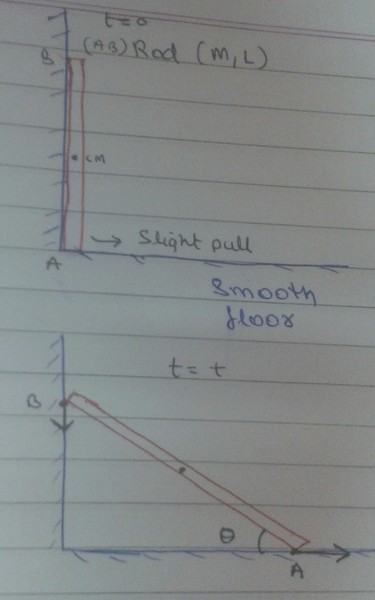 t=0
B (AB) Rod (M, L)
• CM
→ Slight pull
A
Smooth
floor
t = t
B
θ
A